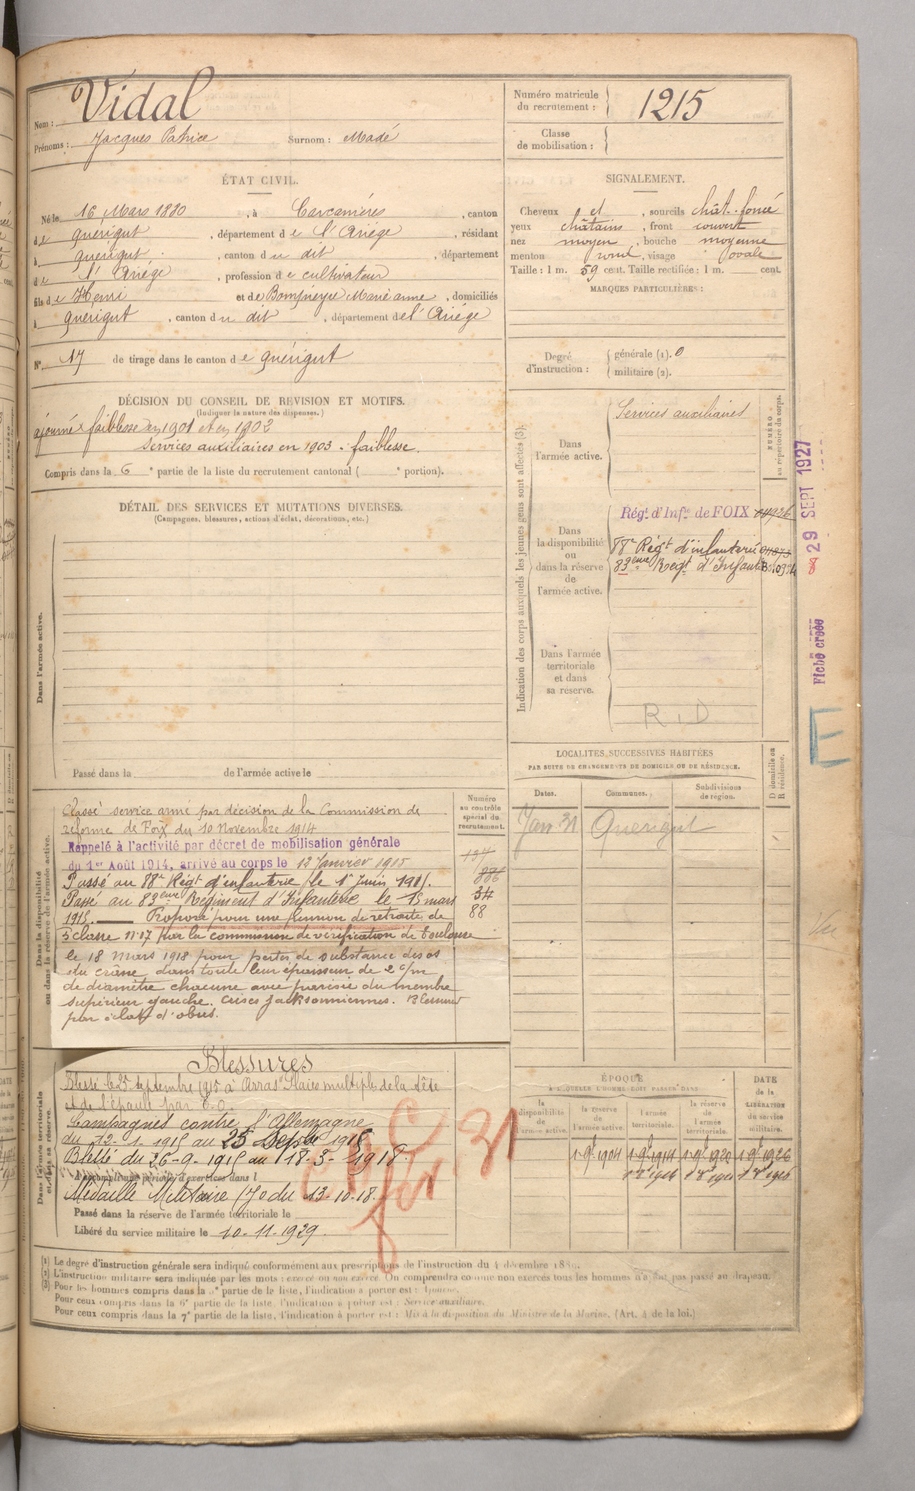 Nom : Vidal
Prénoms : Jacques Patrice Surnom : Madé
Numéro matricule du recrutement : 1215
Classe de mobilisation :
ÉTAT CIVIL.
Né le 16 Mars 1880, à Carcanières, canton
de Quérigut, département de l'Ariège, résidant
à Quérigut, canton du dit, département
de l'Ariège, profession de cultivateur
fils de Henri et de Marie anne, domiciliés
à Quérigut, canton du dit, département de l'Ariège
N° 17 de tirage dans le canton de Quérigut
SIGNALEMENT.
Cheveux et, sourcils chât. foncé
yeux châtains, front couvert
nez moyen, bouche moyenne
menton rond, visage ovale
Taille : 1 m. 59 cent. Taille rectifiée : 1 m. cent.
MARQUES PARTICULIÈRES :
Degré d'instruction : générale (1). 0
militaire (2).
DÉCISION DU CONSEIL DE REVISION ET MOTIFS.
(Indiquer la nature des dispenses.)
ajourné faiblesse en 1901 et en 1902
Services auxiliaires en 1903 - faiblesse
Compris dans la 6e partie de la liste du recrutement cantonal ( e portion).
DÉTAIL DES SERVICES ET MUTATIONS DIVERSES.
(Campagnes, blessures, actions d'éclat, décorations, etc.)
Dans l'armée active.
Passé dans la de l'armée active le
Indication des corps auxquels les jeunes gens sont affectés (3).
NUMÉRO au répertoire du corps.
Dans l'armée active.
Services auxiliaires
Dans la disponibilité ou dans la réserve de l'armée active.
Régt d'Infie de FOIX
88e Régt d'infanterie
83ème Régt d'Infanterie
Dans l'armée territoriale et dans sa réserve.
R.D
29 SEPT 1927
Fiche créée
E
LOCALITÉS SUCCESSIVES HABITÉES
PAR SUITE DE CHANGEMENTS DE DOMICILE OU DE RÉSIDENCE.
Dates. Communes. Subdivisions de région. D domicile ou R résidence.
Janv 31 Querigut
Dans la disponibilité ou dans la réserve de l'armée active.
Numéro au contrôle spécial du recrutement.
Classé service armé par décision de la Commission de
réforme de Foix du 10 novembre 1914
Rappelé à l'activité par décret de mobilisation générale
du 1er Août 1914, arrivé au corps le 12 Janvier 1915
Passé au 88e Régt d'infanterie le 1er Juin 1915.
Passé au 83ème Régiment d'Infanterie le mars
1915. Proposé pour une pension de retraite de
5 classe N°17 par la commission de vérification de Toulouse
le 18 Mars 1918 pour pertes de substance des os
du crâne dans toute leur épaisseur de 2 c/m
de diamètre chacune avec parésie du membre
supérieur gauche. Crises Jacksonniennes. Blessure
par éclat d'obus.
34
88
Dans l'armée territoriale et dans sa réserve.
Blessures
Blessé le 25 septembre 1915 à Arras. Plaies multiples de la tête
et de l'épaule par E.O.
Campagnes contre l'Allemagne
du 12-1-1915 au 25 Septbre 1915
Blessé du 26-9-1915 au 18-3-1918.
Médaille Militaire JO du 13-10-18.
Passé dans la réserve de l'armée territoriale le
Libéré du service militaire le 10-11-1929
fév. 31
ÉPOQUE
À LAQUELLE L'HOMME DOIT PASSER DANS
la disponibilité de l'armée active. la réserve de l'armée active. l'armée territoriale. la réserve de l'armée territoriale.
DATE de la LIBÉRATION du service militaire.
1 9bre 1904 1 9bre 1914 1 9bre 1920 1 9bre 1926
(1) Le degré d'instruction générale sera indiqué conformément aux prescriptions de l'instruction du 4 décembre 1889.
(2) L'instruction militaire sera indiquée par les mots : exercé ou non exercé. On comprendra comme non exercés tous les hommes n'ayant pas passé au drapeau.
(3) Pour les hommes compris dans la 5e partie de la liste, l'indication à porter est : Ajourné.
Pour ceux compris dans la 6e partie de la liste, l'indication à porter est : Service auxiliaire.
Pour ceux compris dans la 7e partie de la liste, l'indication à porter est : Mis à la disposition du Ministre de la Marine. (Art. 4 de la loi.)